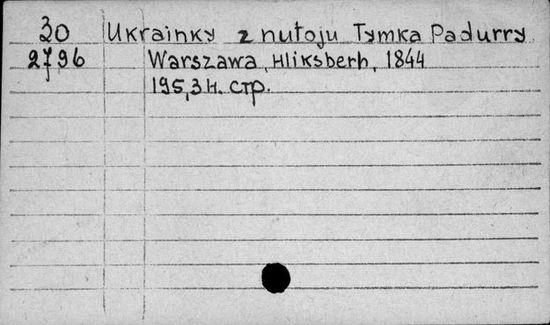 30 Ukrainky z nutoju Tymka Padurry
2796 Warszawa, Hliksberh, 1844
195,3 н. стр.